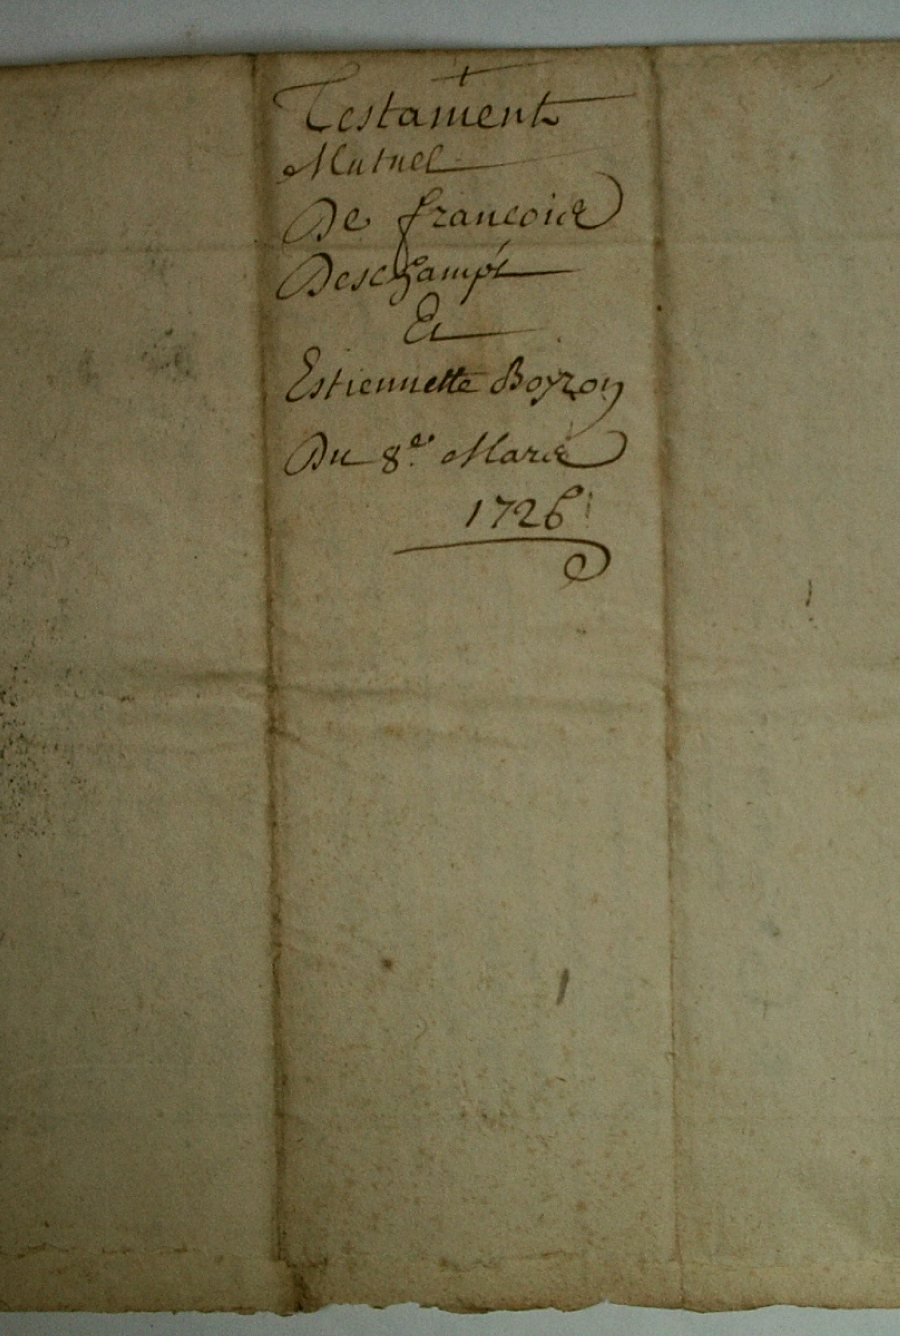 Testament
Mutuel
De francois
Deschamps
Et
Estiennette Boyron
Du 8e. Mars
1726